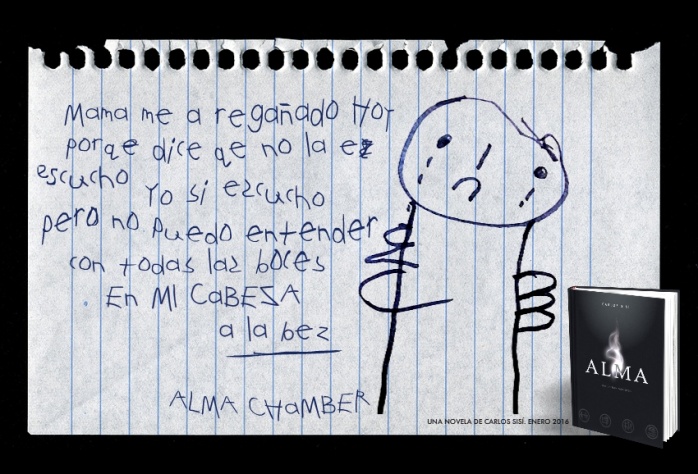 Mama me a regañado HOY
porqe dice qe no la ez
escucho Yo si ezcucho
pero no Puedo entender
con todas laz boces
En MI CaBESA
a la bez
ALMA CHaMBER
UNA NOVELA DE CARLOS SISÍ. ENERO 2016
ALMA